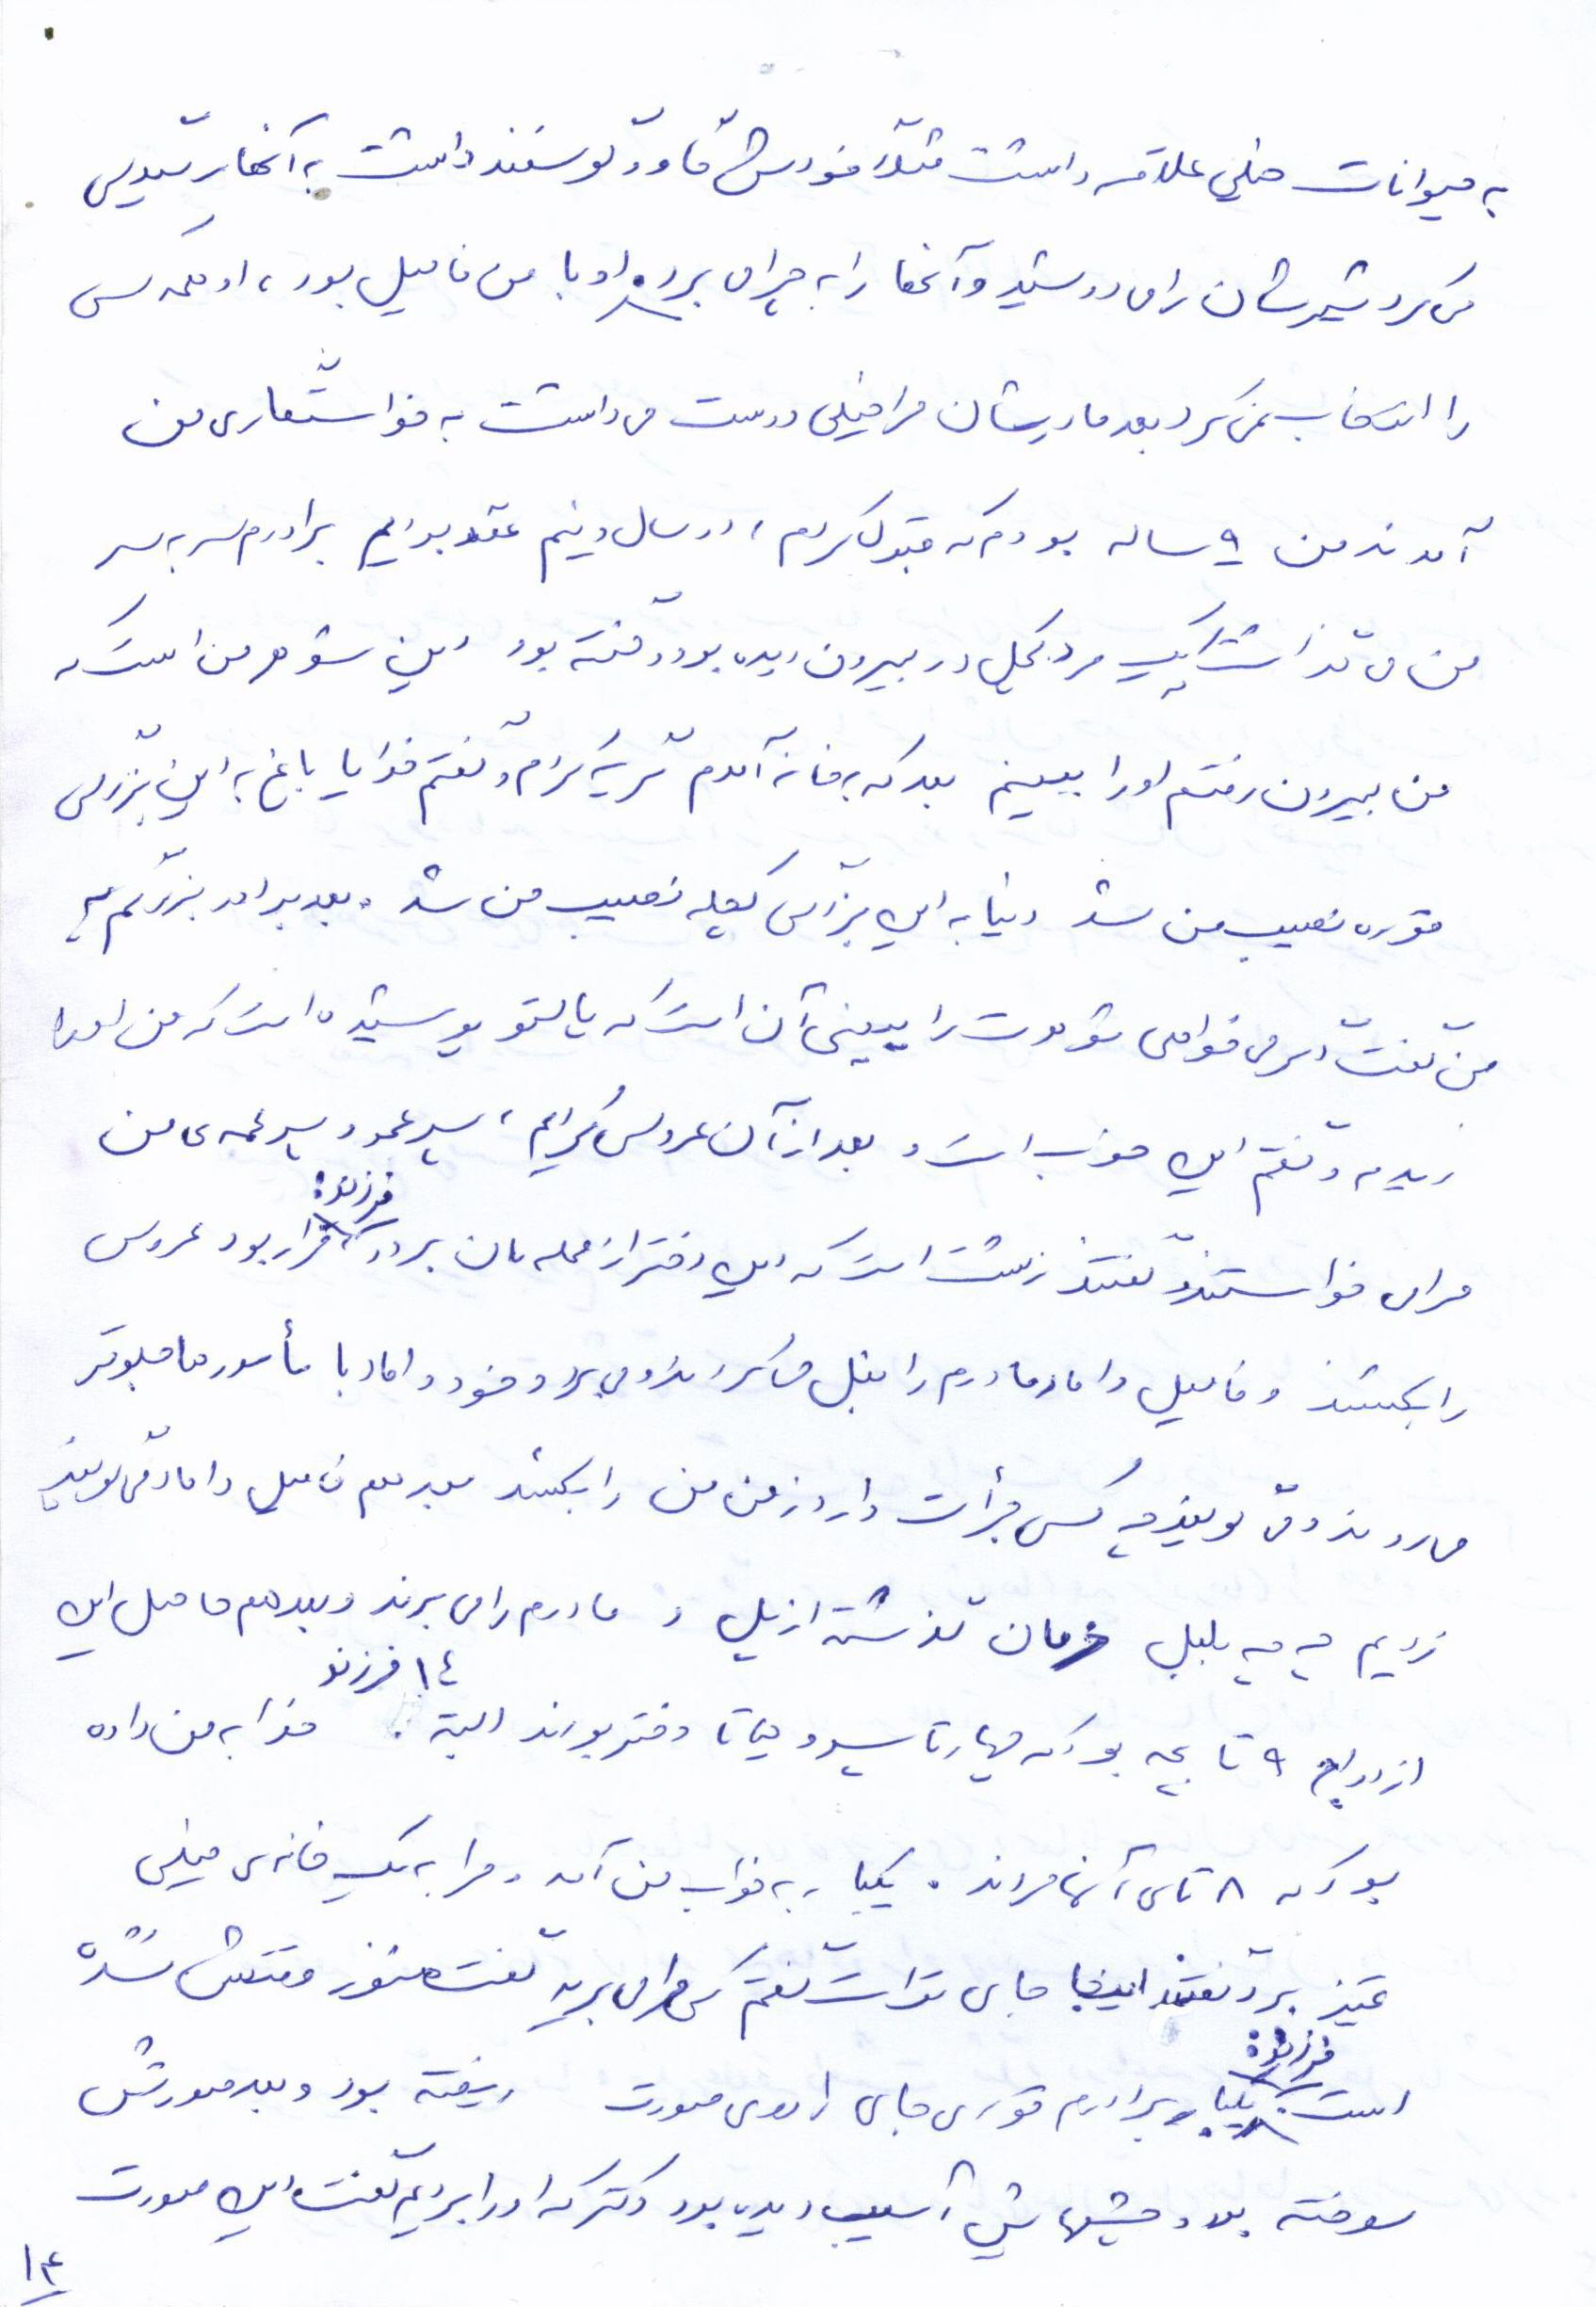 به حیوانات خیلی علاقه داشت مثلاً خودش گاو و گوسفند داشت به آنها رسیدگی
می کرد شیرشان را می دوشید و آنها را به چرا می برد. او با من فامیل بود، او همه کس
را انتخاب نمی کرد بعد مادرشان مرا خیلی دوست می داشت به خواستگاری من
آمدند من ۹ ساله بودم که قبول کردم، دو سال و نیم عقد بودیم برادرم سر به سر
من می گذاشت یک مرد کچل در بیرون دیده بود و گفته بود این شوهر من است که
من بیرون رفتم او را ببینم بعد که به خانه آمدم گریه کردم و گفتم خدایا باغ به این بزرگی
غوره نصیب من شد دنیا به این بزرگی کچله نصیب من شد. بعد برادر بزرگم به
من گفت اگر می خواهی شوهرت را ببینی آن است که پالتو پوشیده است که من او را
دیدم و گفتم این خوب است و بعد از آن عروسی کردیم، پسر عمو و پسر عمه ی من
فرزند:
مرا می خواستند و گفتند زشت است که این دختر از محله مان برود، قرار بود عروس
را بکشند و فامیل داماد مادرم را بغل می کردند و می برد و خود داماد با مأمورها جلوتر
می روند و می گویند چه کسی جرأت دارد زن من را بکشد بعد هم فامیل داماد می گویند
زدیم چه چه بلبل زمان گذشته از پل و مادرم را می برند و بعد هم حاصل این
۱٤ فرزند
ازدواج ۹ تا بچه بود که چهار تا پسر و پنج تا دختر بودند البته. خدا به من داده
بود که ۸ تای آنها مردند. یکبار به خواب من آمد و مرا به یک خانه ی خیلی
تمیز برد و گفتند اینجا جای تو است گفتم کی مرا می برید گفت هنوز وقتش نشده
فرزند:
است. یکبار برادرم قوری چای را روی صورت ریخته بود و بعد صورتش
سوخته بود و چشمهایش آسیب دیده بود دکتر که او را بردیم گفت این صورت
۱۴